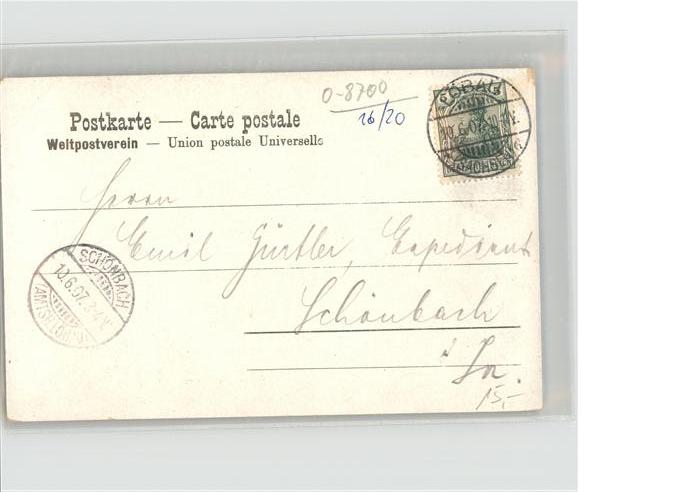 0-8700
16/20
Postkarte — Carte postale
Weltpostverein — Union postale Universelle
LÖBAU
10.6.07.
(SACHSEN)
Herrn
Emil Gürtler, Expedient
Schönbach
i/Sa.
15,-
SCHÖNBACH
10.6.07. 3-4 N.
(AMTSH. LÖBAU)